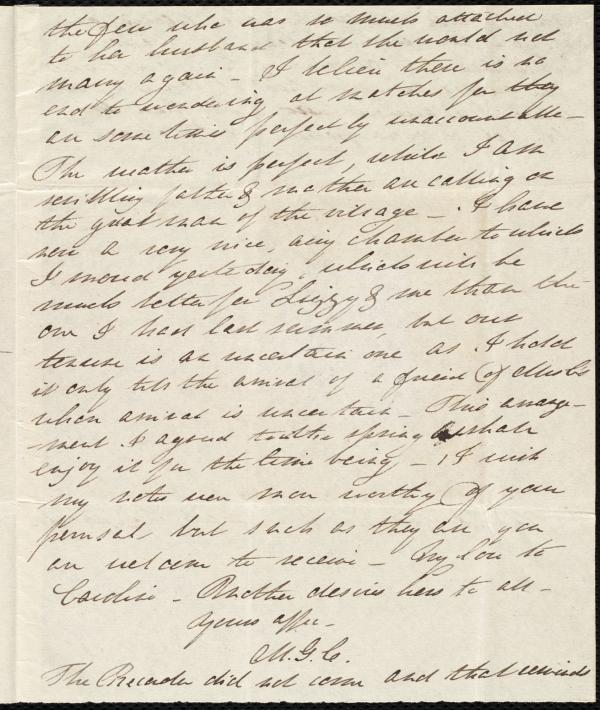 the few who was so much attached
to her husband that she would not
marry again - I believe there is no
end to wondering at matches for they
are sometimes perfectly unaccountable -
The weather is perfect, while I am
scribbling father & mother are calling on
the great man of the village - . I have
now a very nice, airy chamber to which
I moved yesterday, which will be
much better for Lizzy & me than the
one I had last summer, but our
tenure is an uncertain one as I hold
it only till the arrival of a friend of
whose arrival is uncertain - This arrange-
ment I agreed to in the spring & shall
enjoy it for the time being - I wish
my notes were more worthy of your
perusal but such as they are you
are welcome to receive - My love to
Caroline - Mother desires hers to all -
Yours affec -
M. G. C.
The Recorder did not come and that reminds